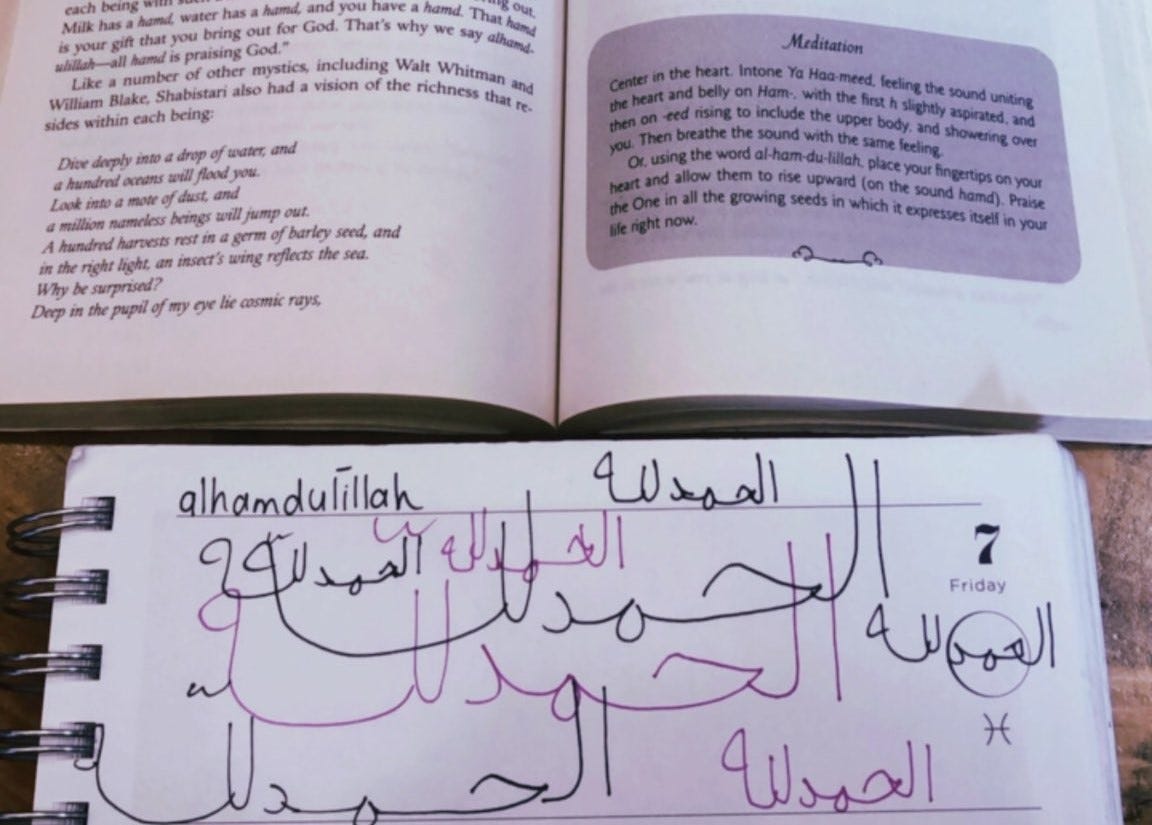 each being with
Milk has a hamd, water has a hamd, and you have a hamd. That hamd
is your gift that you bring out for God. That's why we say alhamd-
ulillah—all hamd is praising God."
Like a number of other mystics, including Walt Whitman and
William Blake, Shabistari also had a vision of the richness that re-
sides within each being:
Dive deeply into a drop of water, and
a hundred oceans will flood you.
Look into a mote of dust, and
a million nameless beings will jump out.
A hundred harvests rest in a germ of barley seed, and
in the right light, an insect's wing reflects the sea.
Why be surprised?
Deep in the pupil of my eye lie cosmic rays,
Meditation
Center in the heart. Intone Ya Haa-meed, feeling the sound uniting
the heart and belly on Ham-, with the first h slightly aspirated, and
then on -eed rising to include the upper body, and showering over
you. Then breathe the sound with the same feeling.
Or, using the word al-ham-du-lillah, place your fingertips on your
heart and allow them to rise upward (on the sound hamd). Praise
the One in all the growing seeds in which it expresses itself in your
life right now.
alhamdulīllah
الحمدلله
الحمدلله
الحمدلله
الحمدلله
7
Friday
الحمدلله
الحمدلله
♓
الحمدلله
الحمدلله